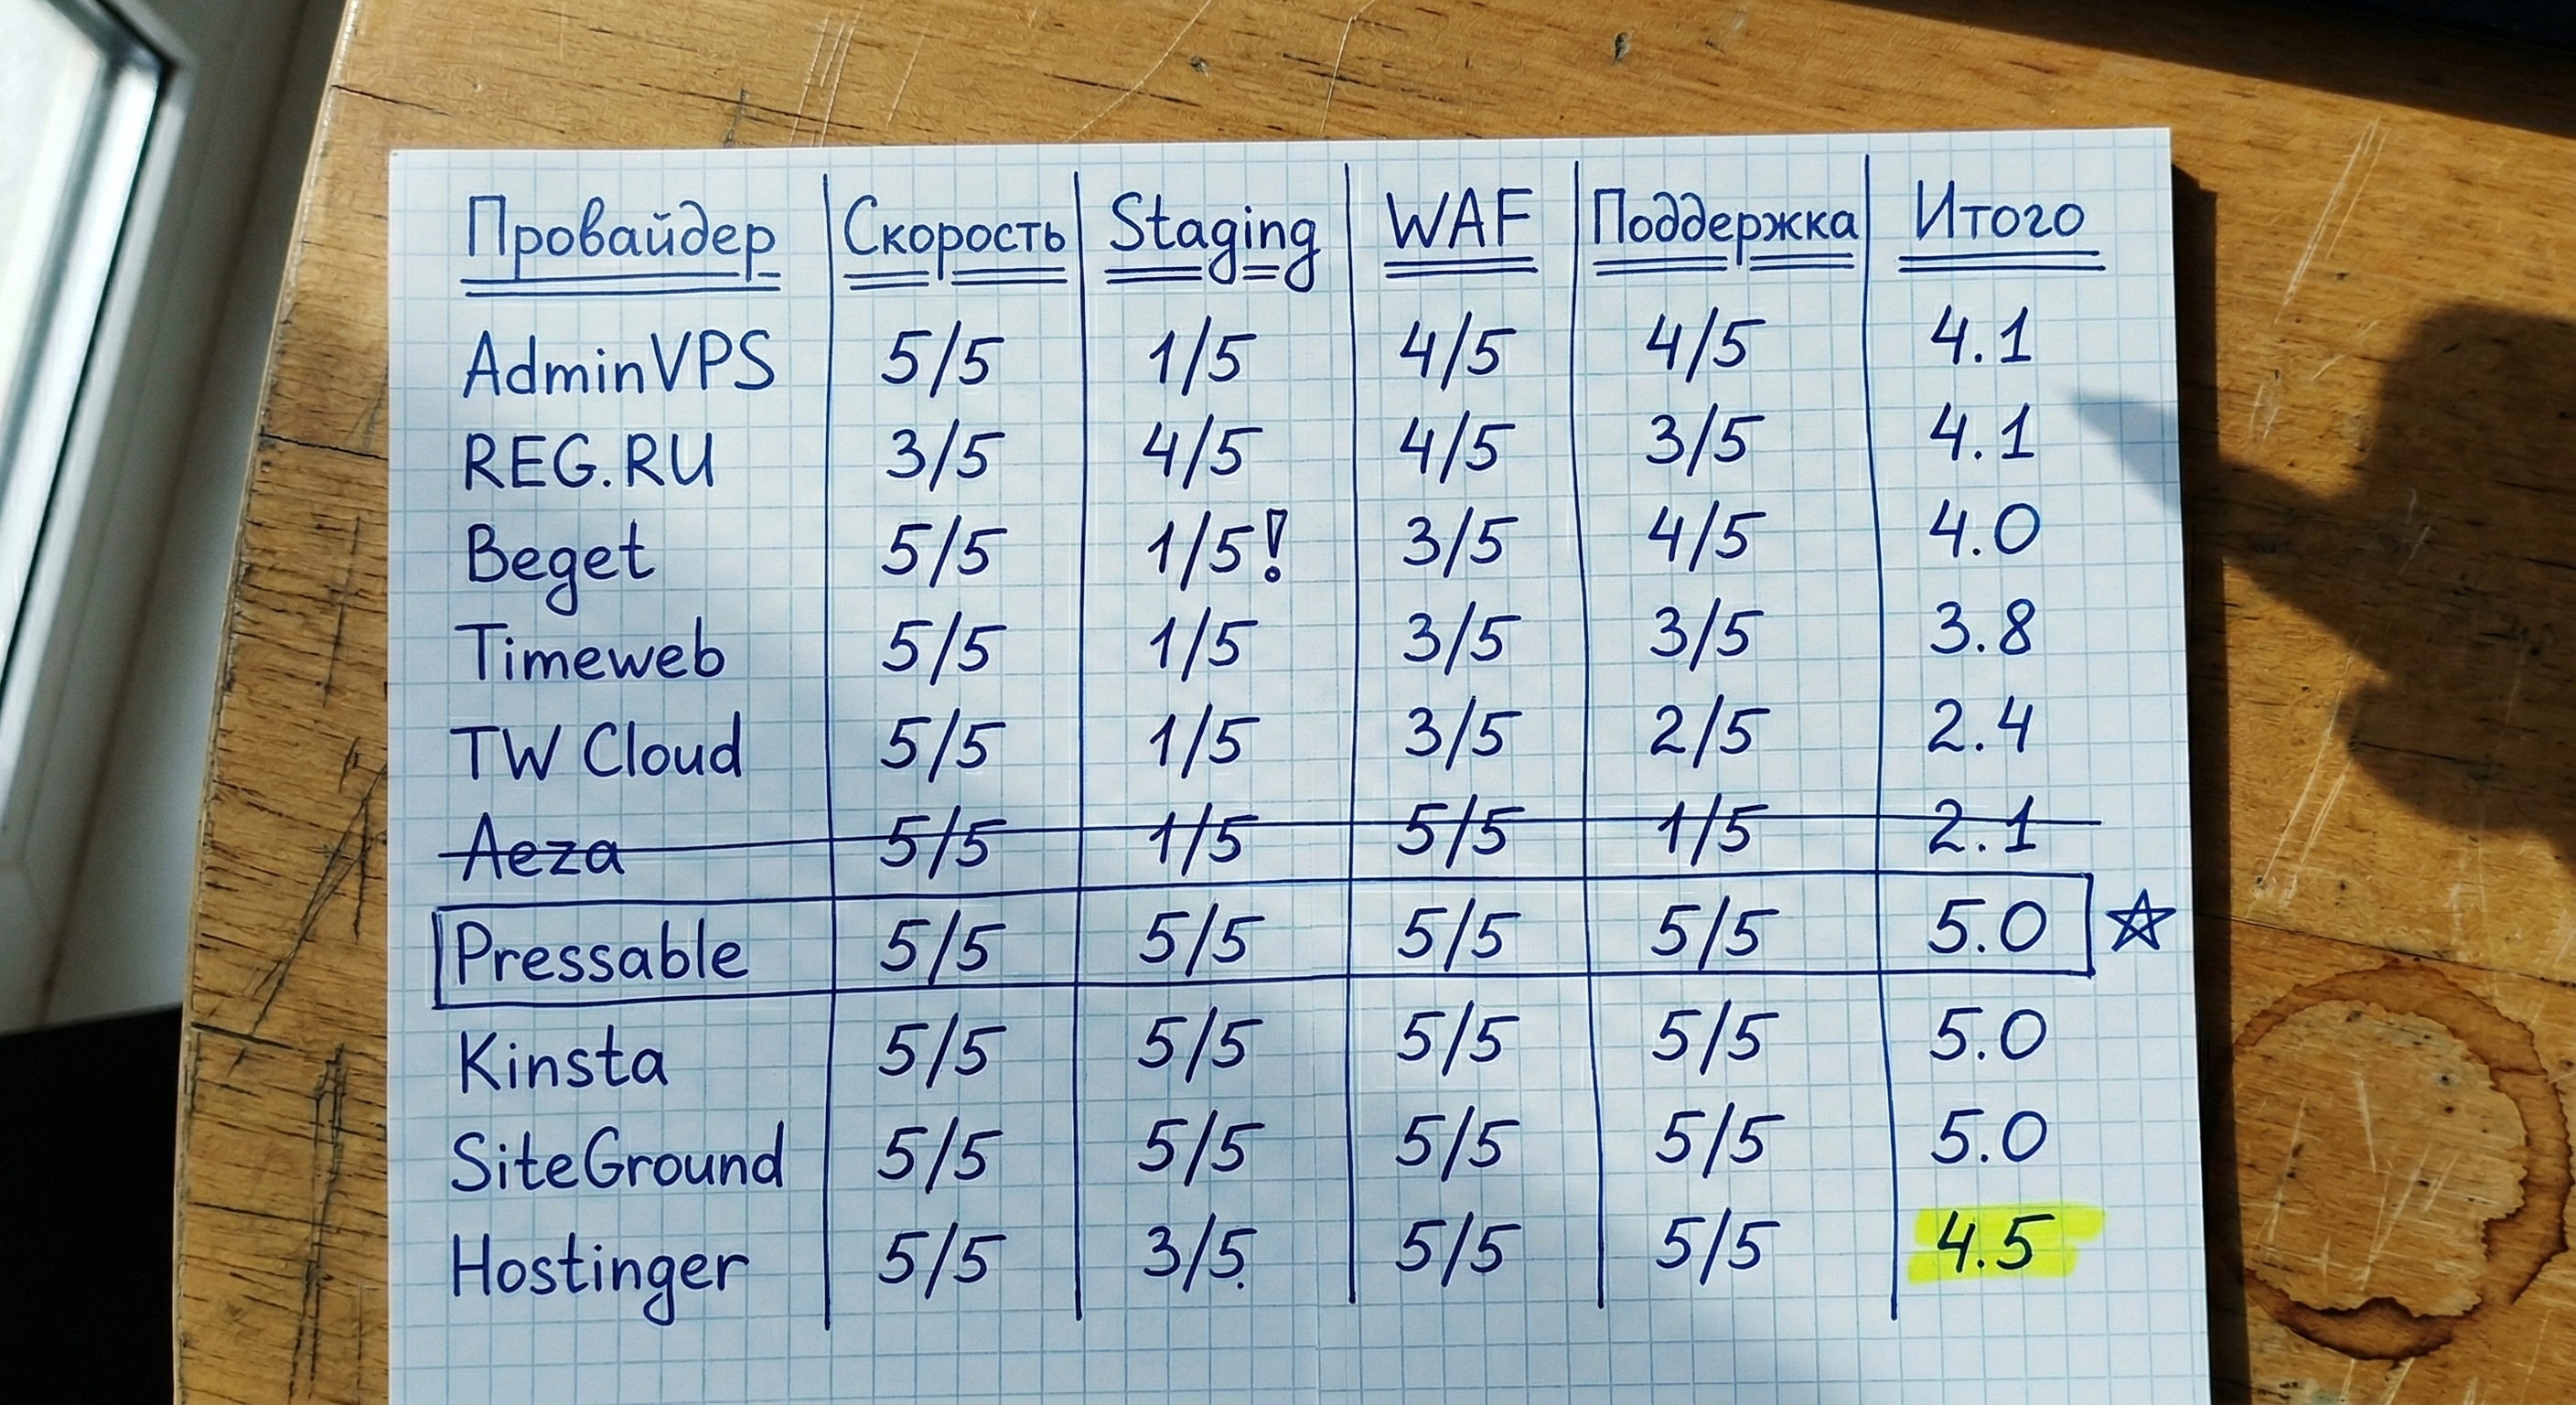 Провайдер Скорость Staging WAF Поддержка Итого
AdminVPS 5/5 1/5 4/5 4/5 4.1
REG.RU 3/5 4/5 4/5 3/5 4.1
Beget 5/5 1/5! 3/5 4/5 4.0
Timeweb 5/5 1/5 3/5 3/5 3.8
TW Cloud 5/5 1/5 3/5 2/5 2.4
Aeza 5/5 1/5 5/5 1/5 2.1
Pressable 5/5 5/5 5/5 5/5 5.0
Kinsta 5/5 5/5 5/5 5/5 5.0
SiteGround 5/5 5/5 5/5 5/5 5.0
Hostinger 5/5 3/5. 5/5 5/5 4.5